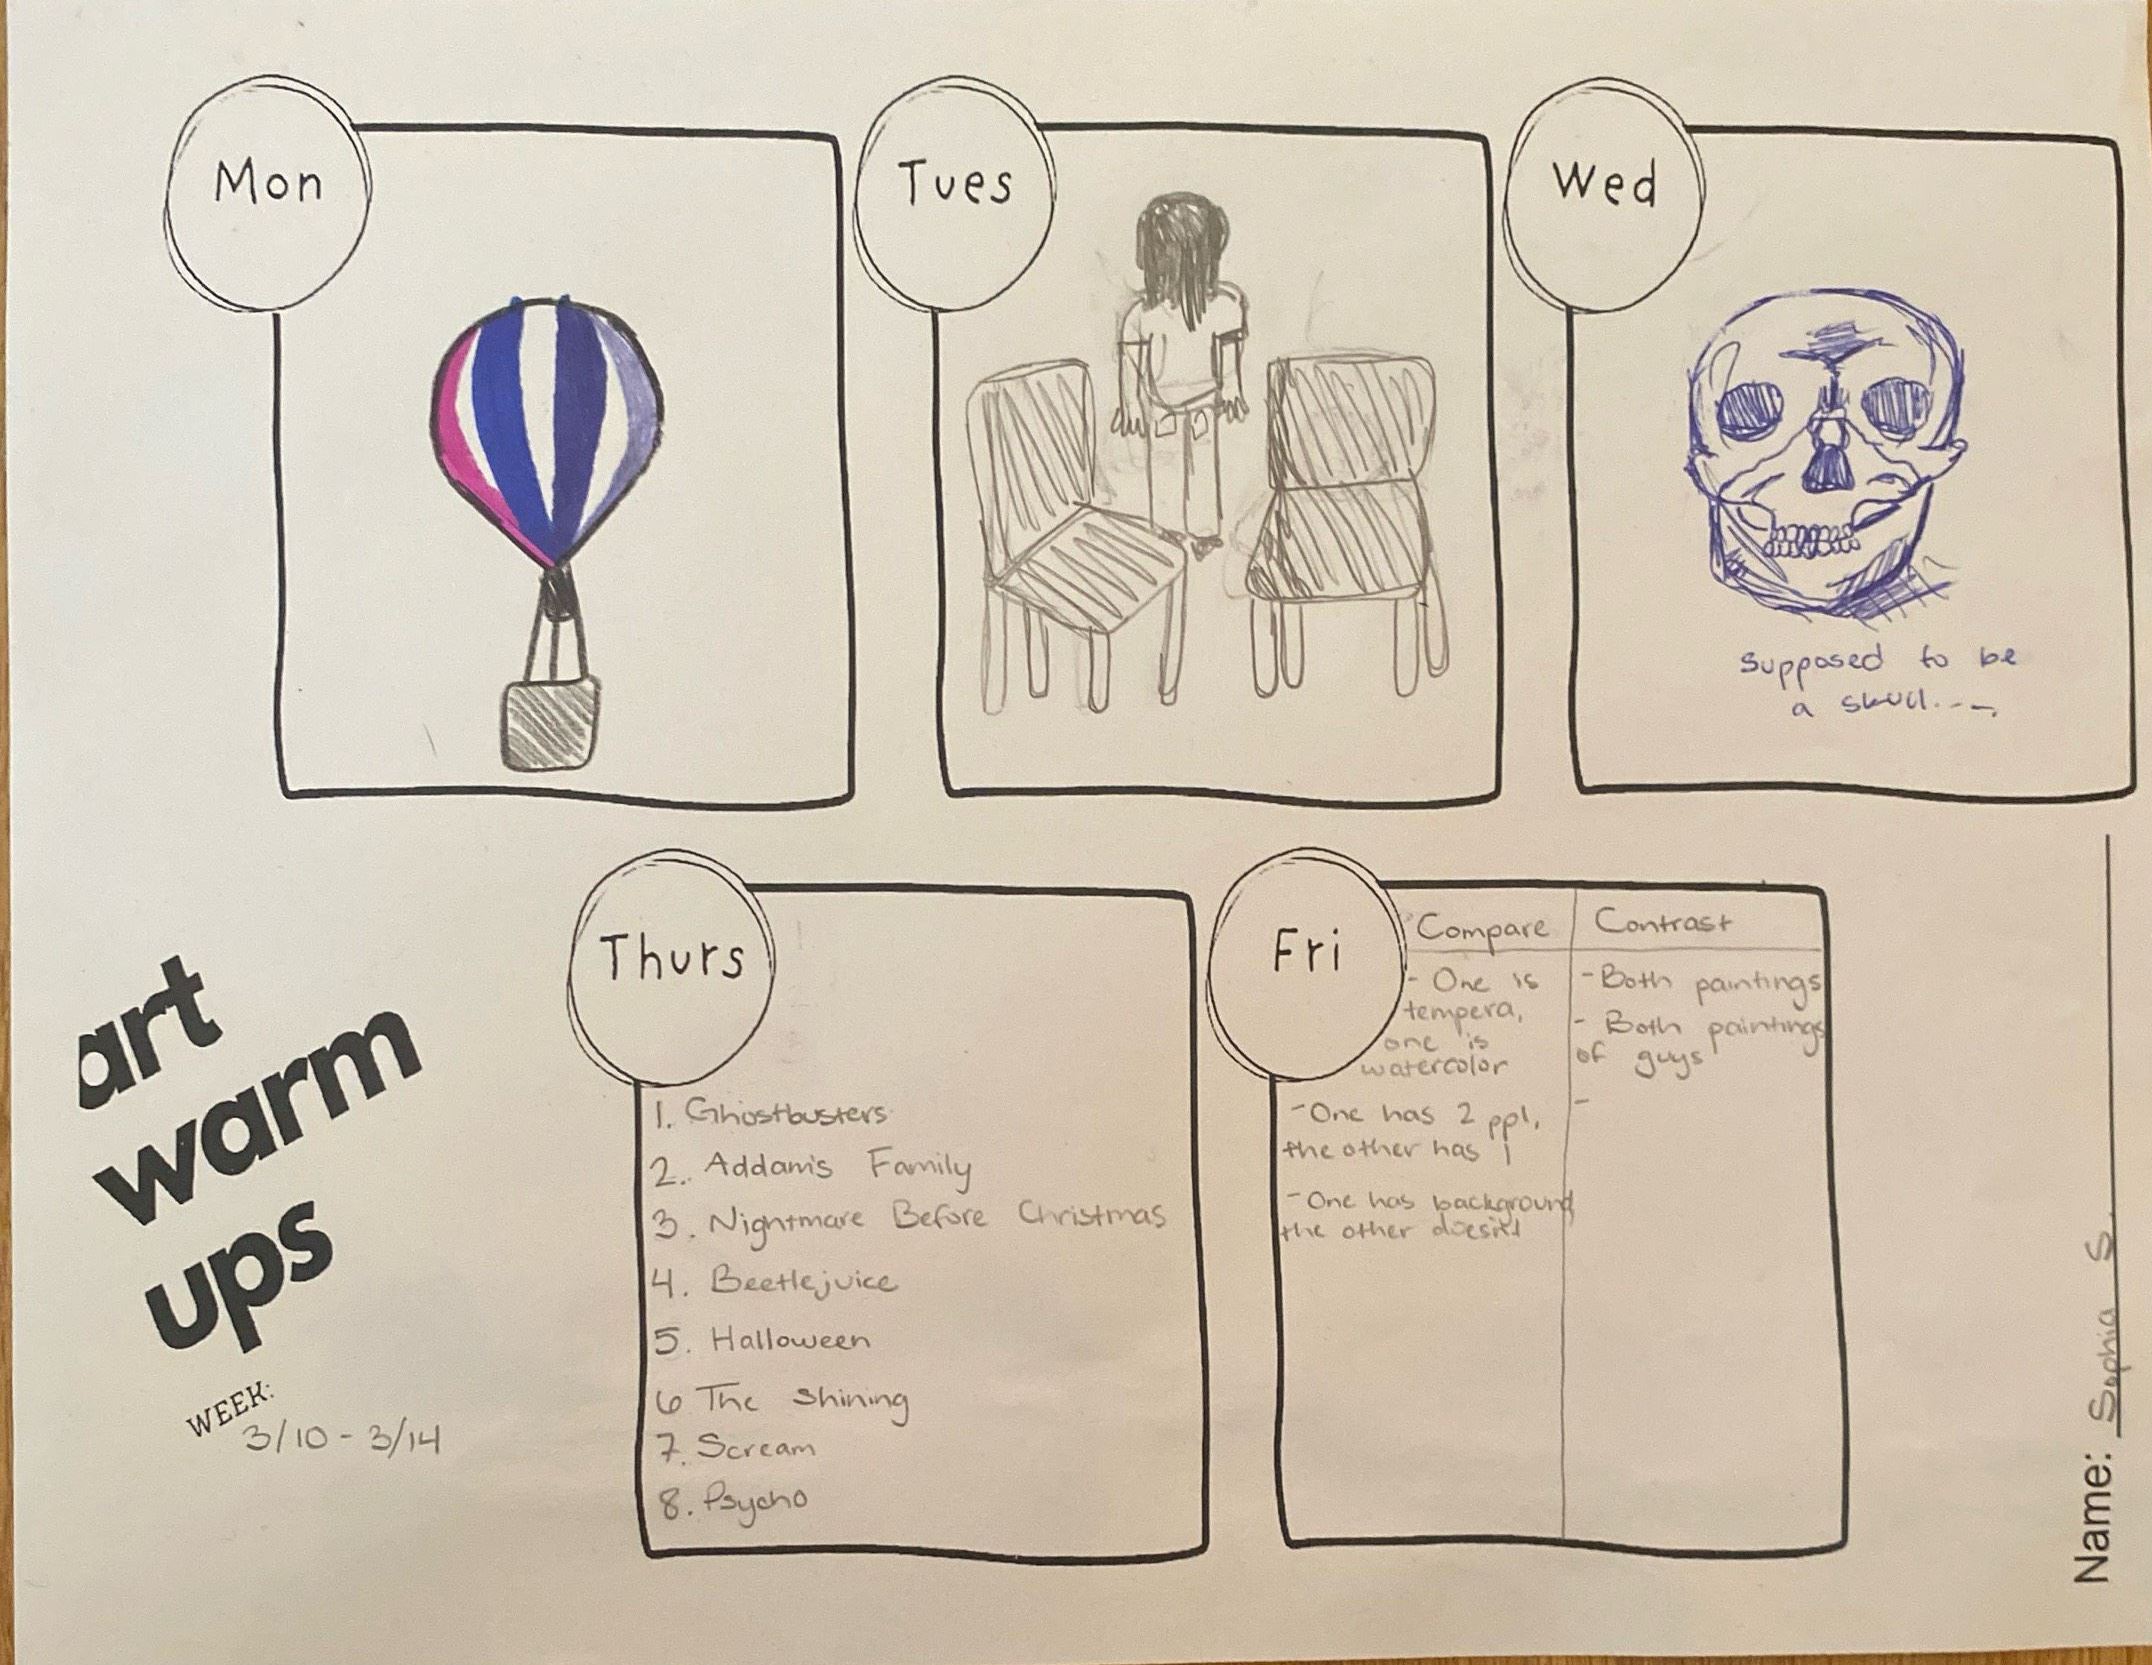 Mon
Tues
Wed
supposed to be
a skull....
art
warm
ups
WEEK:
3/10 - 3/14
Thurs
1. Ghostbusters
2. Addam's Family
3. Nightmare Before Christmas
4. Beetlejuice
5. Halloween
6 The Shining
7. Scream
8. Psycho
Fri
Compare
- One is
tempera,
one is
watercolor
- One has 2 ppl,
the other has 1
- One has background
the other doesn't
Contrast
- Both paintings
- Both paintings
of guys
-
Name: Sophia S.